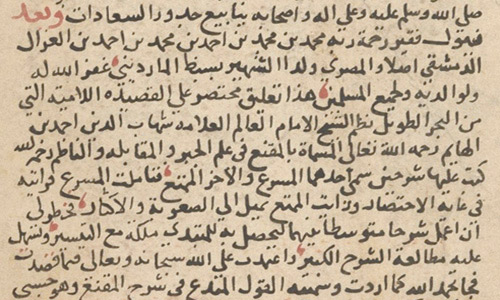 صلى الله وسلم عليه وعلى اله واصحابه ينابيع حدور السعادات وبعد
فيقول فقير رحمة ربه محمد بن محمد بن احمد بن محمد بن احمد بن الغزال
الدمشقي اصلا والمصرى ولدا الشهير بسبط الماردينى غفر الله له
ولوالديه ولجميع المسلمين هذا تعليق مختصر على القصيدة اللامية التى
من البحر الطويل نظم الشيخ الامام العالم العلامه شهاب الدين احمد بن
الهايم رحمه الله تعالى المسماة بالمقنع فى علم الجبر والمقابله والناظم رحمه الله
كتب عليها شرحين سمى احدهما المسرع والاخر الممتع فتاملت المسرع فرايته
فى غاية الاختصار ورايت الممتع يميل الى الصعوبة والاكثار فخطر لى
ان اعمل شرحا متوسطا بينهما ليحصل به للمبتدى ملكة مع التيسير وتسهل
عليه مطالعة الشرح الكبير واعتمدت على الله سبحانه وتعالى فيما قصدت
فجا بحمد الله كما اردت وسميته القول المبدع فى شرح المقنع وهو حسبى